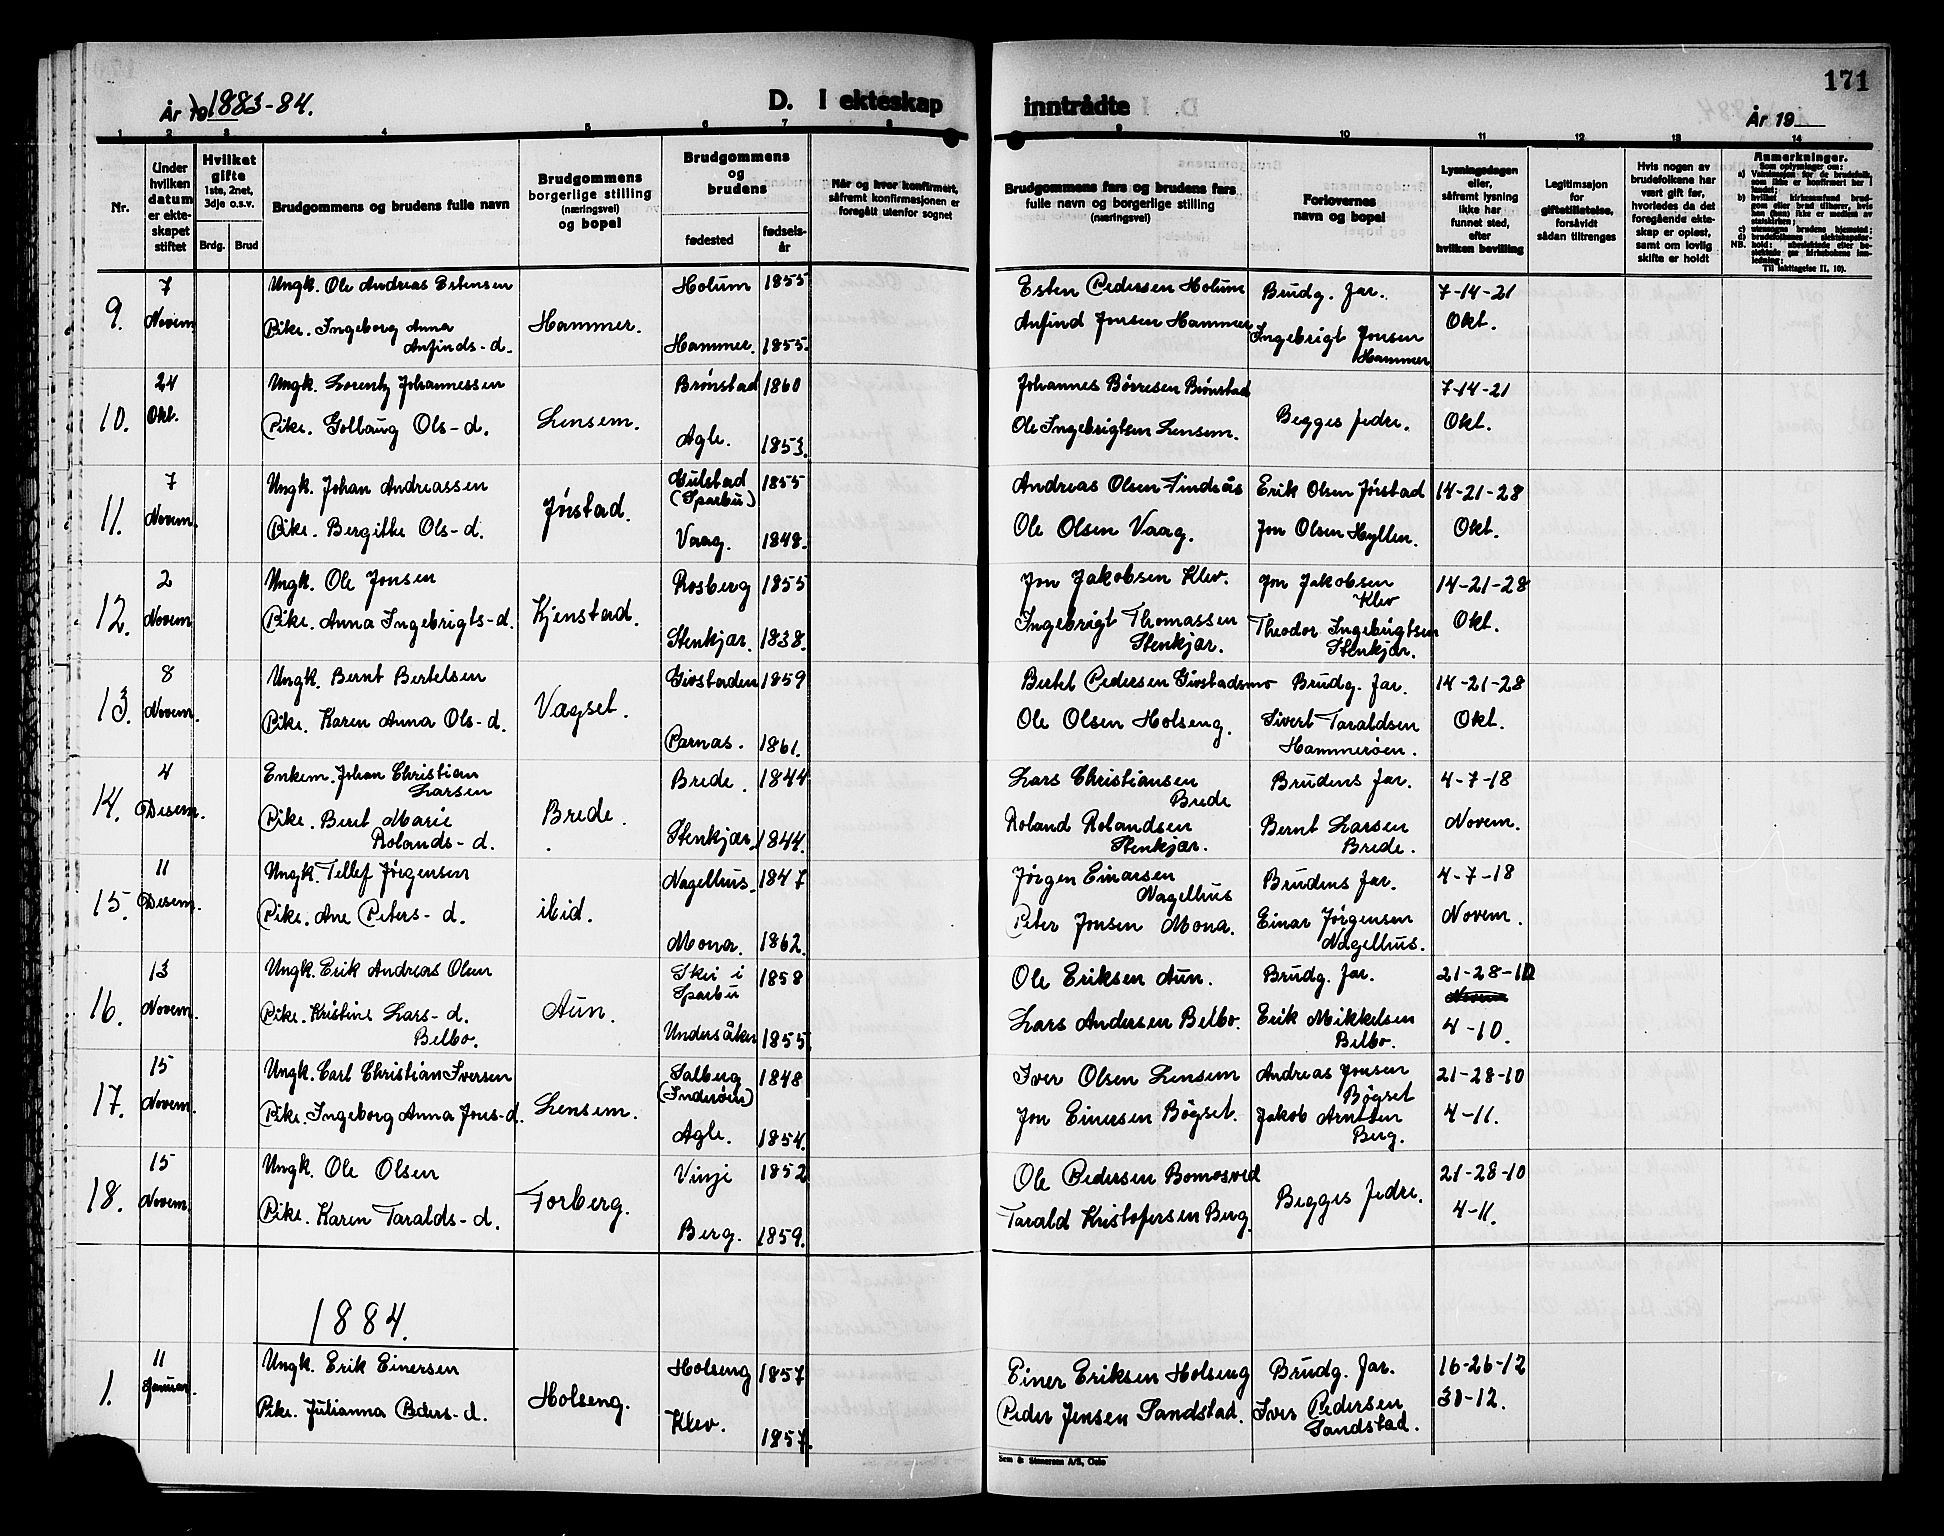 171
År 1883-84.
D. I ekteskap inntrådte
År 19
1 2 3 4 5 6 7 8 9 10 11 12 13 14
Nr.
Under hvilken datum er ekteskapet stiftet
Hvilket gifte 1ste, 2net, 3dje o.s.v.
Brdg. Brud
Brudgommens og brudens fulle navn
Brudgommens borgerlige stilling (næringsvei) og bopel
Brudgommens og brudens
fødested
fødselsår
Når og hvor konfirmert, såfremt konfirmasjonen er foregått utenfor sognet
Brudgommens fars og brudens fars fulle navn og borgerlige stilling (næringsvei)
Forlovernes navn og bopel
Lysningsdagen eller, såfremt lysning ikke har funnet sted, efter hvilken bevilling
Legitimasjon for giftetillatelse, forsåvidt sådan tiltrenges
Hvis nogen av brudefolkene har vært gift før, hvorledes da det foregående ekteskap er opløst, samt om lovlig skifte er holdt
Anmerkninger.
Som oplysninger om:
9. 7 Novem Ungk. Ole Andreas Estensen Hammer. Holum 1855 Esten Pedersen Holum Brudg. far. 7-14-21 Okt.
Pike. Ingeborg Anna Anfinds-d. Hammer. 1855. Anfind Jonsen Hammer Ingebrigt Jonsen Hammer
10. 24 Okt. Ungk. Lorentz Johannessen Lensem. Brønstad 1860 Johannes Børresen Brønstad Begges fedre. 7-14-21 Okt.
Pike. Gollaug Ols-d. Agle. 1853. Ole Ingebrigtsen Lensem.
11. 7 Novem. Ungk. Johan Andreassen Jørstad. Gulstad (Sparbu) 1855 Andreas Olsen Tindsås Erik Olsen Jørstad 14-21-28 Okt.
Pike. Bergithe Ols-d. Vaag. 1848. Ole Olsen Vaag. Jon Olsen Hyllen.
12. 2 Novem Ungk. Ole Jonsen Kjenstad. Rosberg 1855 Jon Jakobsen Klev. Jon Jakobsen Klev 14-21-28 Okt.
Pike. Anna Ingebrigts-d. Stenkjær. 1838. Ingebrigt Thomassen Stenkjær. Theodor Ingebrigtsen Stenkjær.
13. 8 Novem. Ungk. Bernt Bertelsen Vagset. Givstaden 1859 Bertel Pedersen Givstadsmo Brudg. far. 14-21-28 Okt.
Pike. Karen Anna Ols-d. Parnas. 1861. Ole Olsen Holseng. Sivert Taraldsen Hammerøen.
14. 4 Desem. Enkem. Johan Christian Larsen Brede. Brede. 1844 Lars Christiansen Brede Brudens far. 4-7-18 Novem.
Pike. Beret Marie Rolands-d. Stenkjær 1844. Roland Rolandsen Stenkjær. Bernt Larsen Brede.
15. 11 Desem. Ungk. Tellef Jørgensen ibid. Nagelhus. 1847 Jørgen Einarsen Nagelhus Brudens far. 4-7-18 Novem.
Pike. Ane Peters-d. Mona. 1862. Peter Jonsen Mona. Einar Jørgensen Nagelhus.
16. 13 Novem. Ungk. Erik Andreas Olsen Aun. Skei i Sparbu 1858 Ole Eriksen Aun. Brudg. far. 21-28-10 4-10.
Pike. Kristine Lars-d. Belbo. Undersåker 1855. Lars Andersen Belbo. Erik Mikkelsen Belbo.
17. 15 Novem. Ungk. Carl Christian Iversen Lensem. Salberg (Inderøen) 1848 Iver Olsen Lensem Andreas Jonsen Bøgset 21-28-10 4-11.
Pike. Ingeborg Anna Jons-d. Agle. 1854. Jon Einersen Bøgset. Jakob Arntsen Berg.
18. 15 Novem. Ungk. Ole Olsen Forberg. Vinje 1852 Ole Pedersen Bomosved Begges fedre. 21-28-10 4-11.
Pike. Karen Taralds-d. Berg. 1859. Tarald Kristofersen Berg.
1884.
1. 11 Januar. Ungk. Erik Einersen Holseng. Holseng 1857 Einer Eriksen Holseng Brudg. far. 16-26-12 30-12.
Pike. Julianna Peders-d. Klev. 1857. Peder Jensen Sandstad. Iver Pedersen Sandstad.
Sem & Stenersen A/S, Oslo